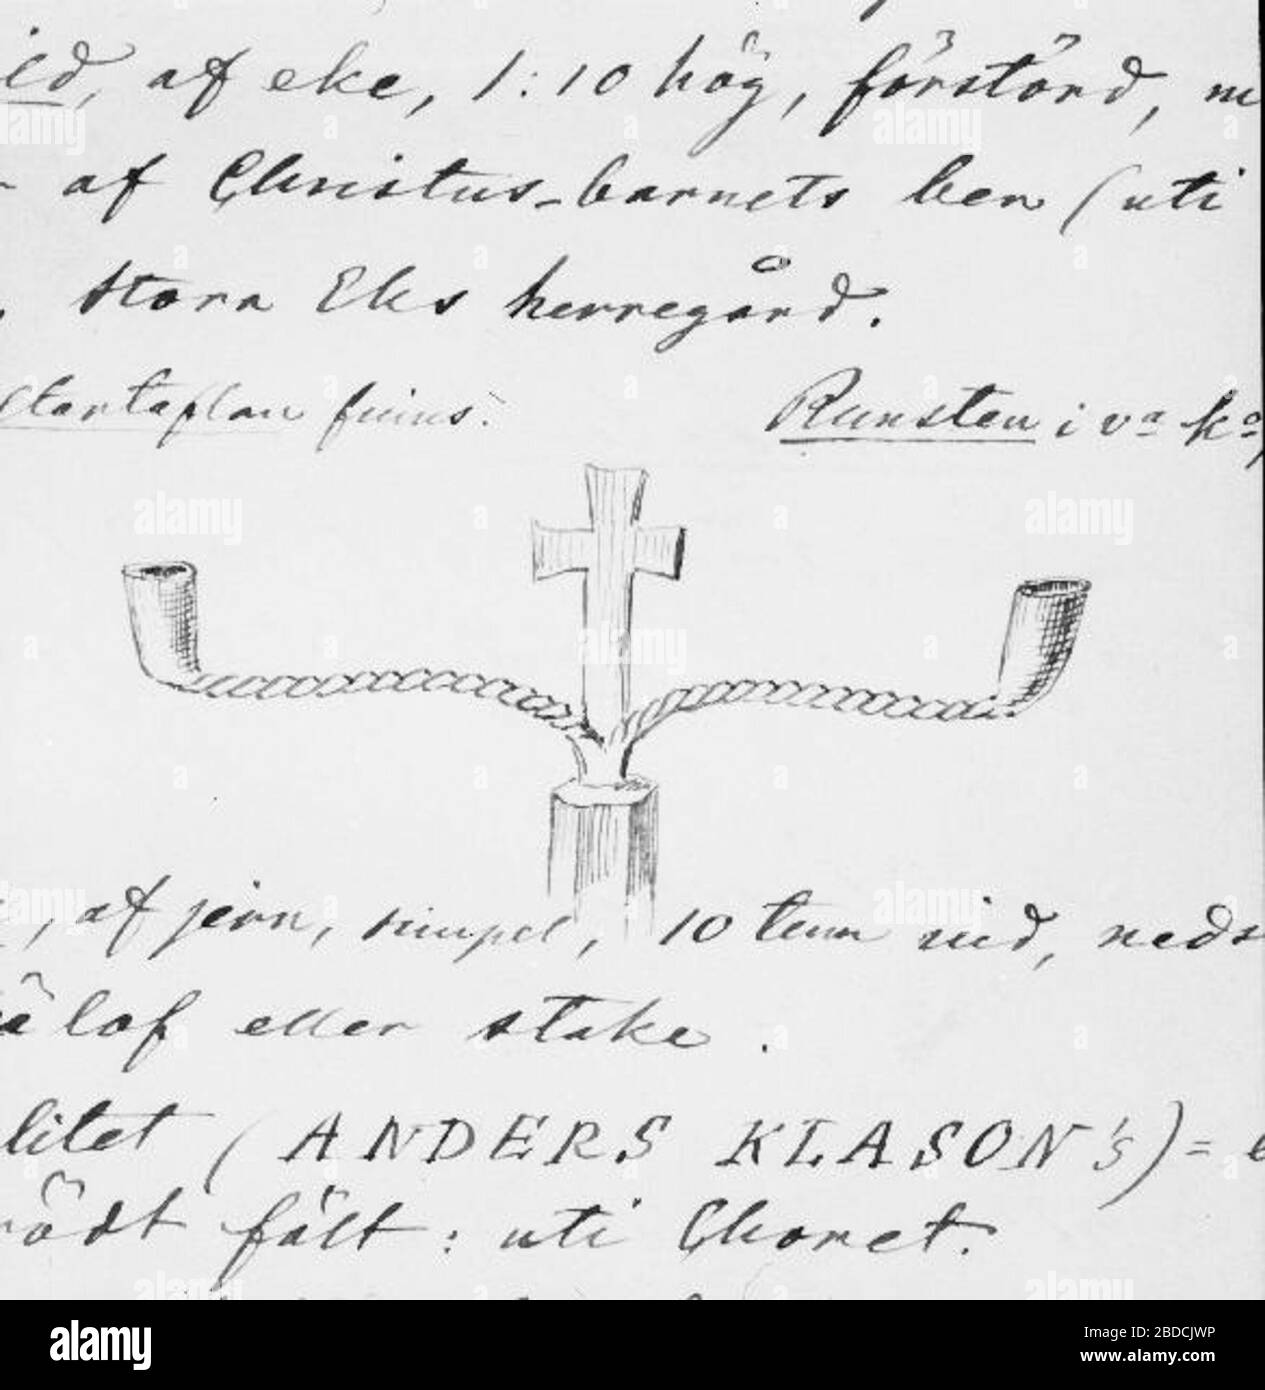 af eke, 1:10 hög, förstörd, m
af Christus-barnets ben (uti
Stora Eks herregård.
Altartaflan finns. Runsten i va ko,
, af jern, simpel, 10 tum vid, neds
lof eller stake.
litet (ANDERS KLASON's) = e
rödt fält: uti Choret.
alamy
Image ID: 2BDCJWP
www.alamy.com